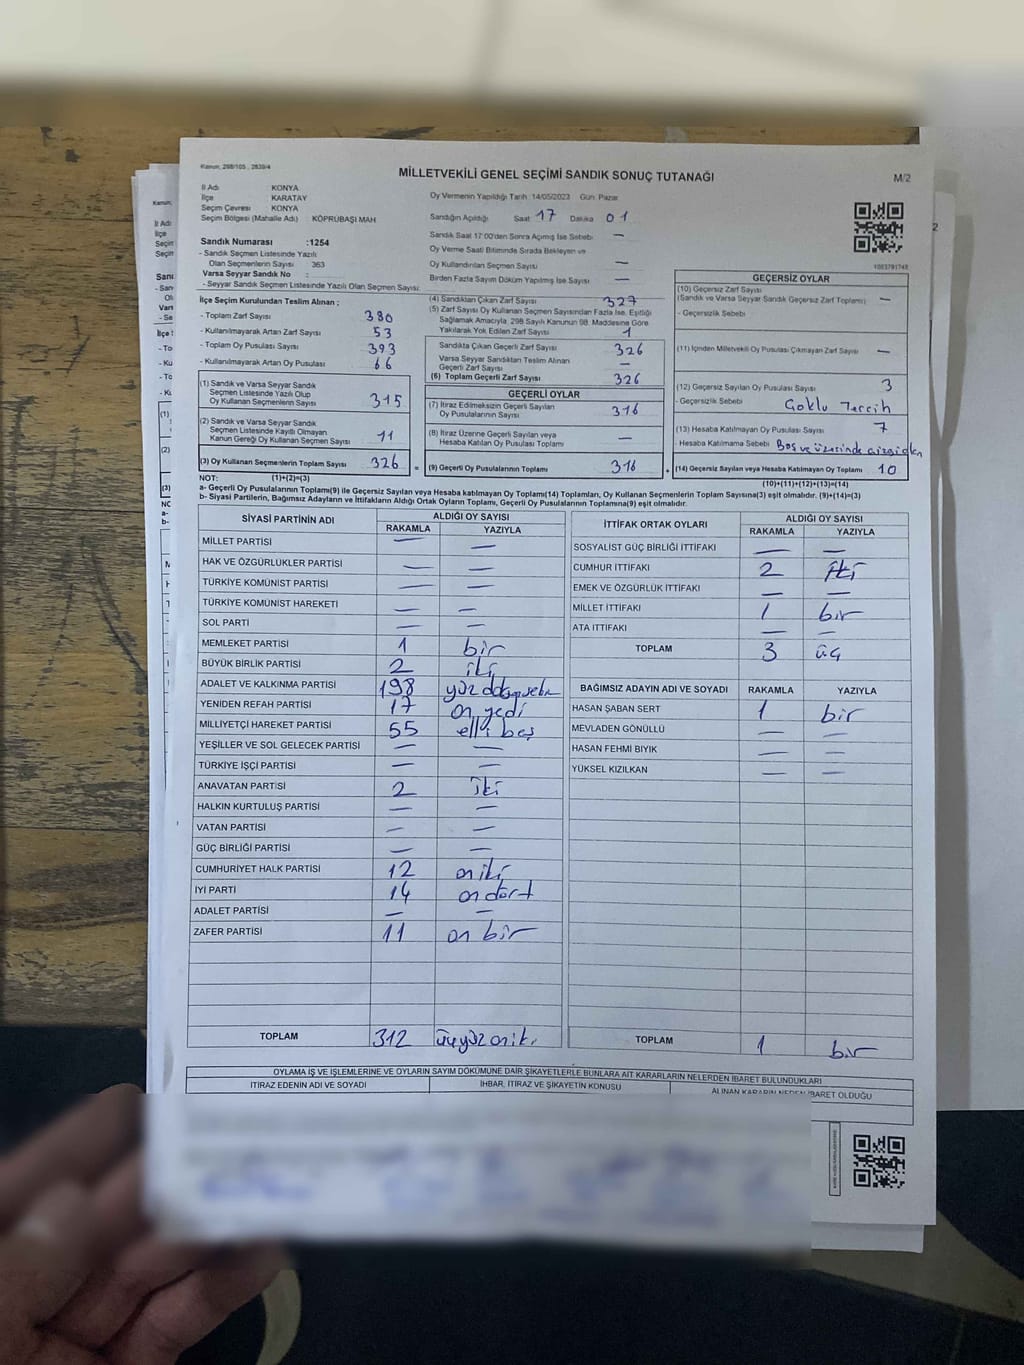 Kanun; 298/105 , 2839/4
MİLLETVEKİLİ GENEL SEÇİMİ SANDIK SONUÇ TUTANAĞI
M/2
İl Adı : KONYA
İlçe : KARATAY
Seçim Çevresi : KONYA
Seçim Bölgesi (Mahalle Adı) : KÖPRÜBAŞI MAH
Sandık Numarası :1254
- Sandık Seçmen Listesinde Yazılı
Olan Seçmenlerin Sayısı : 363
Varsa Seyyar Sandık No :
- Seyyar Sandık Seçmen Listesinde Yazılı Olan Seçmen Sayısı:
İlçe Seçim Kurulundan Teslim Alınan ;
- Toplam Zarf Sayısı : 380
- Kullanılmayarak Artan Zarf Sayısı : 53
- Toplam Oy Pusulası Sayısı : 393
- Kullanılmayarak Artan Oy Pusulası : 66
(1) Sandık ve Varsa Seyyar Sandık
Seçmen Listesinde Yazılı Olup
Oy Kullanan Seçmenlerin Sayısı : 315
(2) Sandık ve Varsa Seyyar Sandık
Seçmen Listesinde Kayıtlı Olmayan
Kanun Gereği Oy Kullanan Seçmen Sayısı : 11
(3) Oy Kullanan Seçmenlerin Toplam Sayısı : 326
Oy Vermenin Yapıldığı Tarih :14/05/2023 Gün: Pazar
Sandığın Açıldığı Saat: 17 Dakika 01
Sandık Saat 17:00'den Sonra Açılmış İse Sebebi : —
Oy Verme Saati Bitiminde Sırada Bekleyen ve
Oy Kullandırılan Seçmen Sayısı : —
Birden Fazla Sayım Döküm Yapılmış İse Sayısı : —
(4) Sandıktan Çıkan Zarf Sayısı : 327
(5) Zarf Sayısı Oy Kullanan Seçmen Sayısından Fazla İse, Eşitliği
Sağlamak Amacıyla, 298 Sayılı Kanunun 98. Maddesine Göre
Yakılarak Yok Edilen Zarf Sayısı : 1
Sandıkta Çıkan Geçerli Zarf Sayısı : 326
Varsa Seyyar Sandıktan Teslim Alınan
Geçerli Zarf Sayısı : —
(6) Toplam Geçerli Zarf Sayısı : 326
GEÇERLİ OYLAR
(7) İtiraz Edilmeksizin Geçerli Sayılan
Oy Pusulalarının Sayısı : 316
(8) İtiraz Üzerine Geçerli Sayılan veya
Hesaba Katılan Oy Pusulası Toplamı : —
(9) Geçerli Oy Pusulalarının Toplamı : 316
GEÇERSİZ OYLAR
(10) Geçersiz Zarf Sayısı
(Sandık ve Varsa Seyyar Sandık Geçersiz Zarf Toplamı) : —
- Geçersizlik Sebebi :
(11) İçinden Milletvekili Oy Pusulası Çıkmayan Zarf Sayısı : —
(12) Geçersiz Sayılan Oy Pusulası Sayısı : 3
- Geçersizlik Sebebi : Çoklu Tercih
(13) Hesaba Katılmayan Oy Pusulası Sayısı : 7
Hesaba Katılmama Sebebi : Boş ve üzerinde
(14) Geçersiz Sayılan veya Hesaba Katılmayan Oy Toplamı : 10
NOT: (1)+(2)=(3) (10)+(11)+(12)+(13)=(14)
a- Geçerli Oy Pusulalarının Toplamı(9) ile Geçersiz Sayılan veya Hesaba katılmayan Oy Toplamı(14) Toplamları, Oy Kullanan Seçmenlerin Toplam Sayısına(3) eşit olmalıdır. (9)+(14)=(3)
b- Siyasi Partilerin, Bağımsız Adayların ve İttifakların Aldığı Ortak Oyların Toplamı, Geçerli Oy Pusulalarının Toplamına(9) eşit olmalıdır.
SİYASİ PARTİNİN ADI ALDIĞI OY SAYISI
RAKAMLA YAZIYLA
MİLLET PARTİSİ — —
HAK VE ÖZGÜRLÜKLER PARTİSİ — —
TÜRKİYE KOMÜNİST PARTİSİ — —
TÜRKİYE KOMÜNİST HAREKETİ — —
SOL PARTİ — —
MEMLEKET PARTİSİ 1 bir
BÜYÜK BİRLİK PARTİSİ 2 iki
ADALET VE KALKINMA PARTİSİ 198 yüz
YENİDEN REFAH PARTİSİ 17 on yedi
MİLLİYETÇİ HAREKET PARTİSİ 55 elli beş
YEŞİLLER VE SOL GELECEK PARTİSİ — —
TÜRKİYE İŞÇİ PARTİSİ — —
ANAVATAN PARTİSİ 2 iki
HALKIN KURTULUŞ PARTİSİ — —
VATAN PARTİSİ — —
GÜÇ BİRLİĞİ PARTİSİ — —
CUMHURİYET HALK PARTİSİ 12 on iki
İYİ PARTİ 14 on dört
ADALET PARTİSİ — —
ZAFER PARTİSİ 11 on bir
TOPLAM 312 üçyüz oniki
İTTİFAK ORTAK OYLARI ALDIĞI OY SAYISI
RAKAMLA YAZIYLA
SOSYALİST GÜÇ BİRLİĞİ İTTİFAKI — —
CUMHUR İTTİFAKI 2 iki
EMEK VE ÖZGÜRLÜK İTTİFAKI — —
MİLLET İTTİFAKI 1 bir
ATA İTTİFAKI — —
TOPLAM 3 üç
BAĞIMSIZ ADAYIN ADI VE SOYADI RAKAMLA YAZIYLA
HASAN ŞABAN SERT 1 bir
MEVLADEN GÖNÜLLÜ — —
HASAN FEHMİ BIYIK — —
YÜKSEL KIZILKAN — —
TOPLAM 1 bir
OYLAMA İŞ VE İŞLEMLERİNE VE OYLARIN SAYIM DÖKÜMÜNE DAİR ŞİKAYETLERLE BUNLARA AİT KARARLARIN NELERDEN İBARET BULUNDUKLARI
İTİRAZ EDENİN ADI VE SOYADI İHBAR, İTİRAZ VE ŞİKAYETİN KONUSU ALINAN KARARIN NEDEN İBARET OLDUĞU